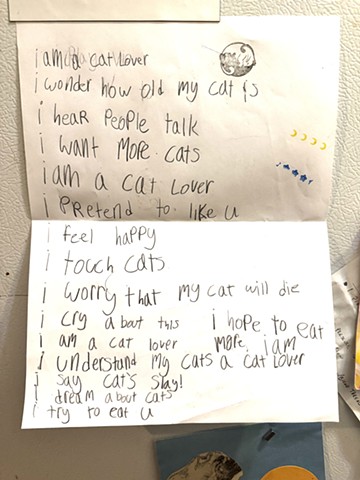 i am a cat Lover
i wonder how old my cat is
i hear PeoPle talk
i want More cats
i am a cat Lover
i Pretend to like u
i feel happy
i touch cats
i worry that my cat will die
i cry about this
i hope to eat
i am a cat lover
more. i am
i understand my cats a cat Lover
i say cat's slay!
i dream about cats
i try to eat u